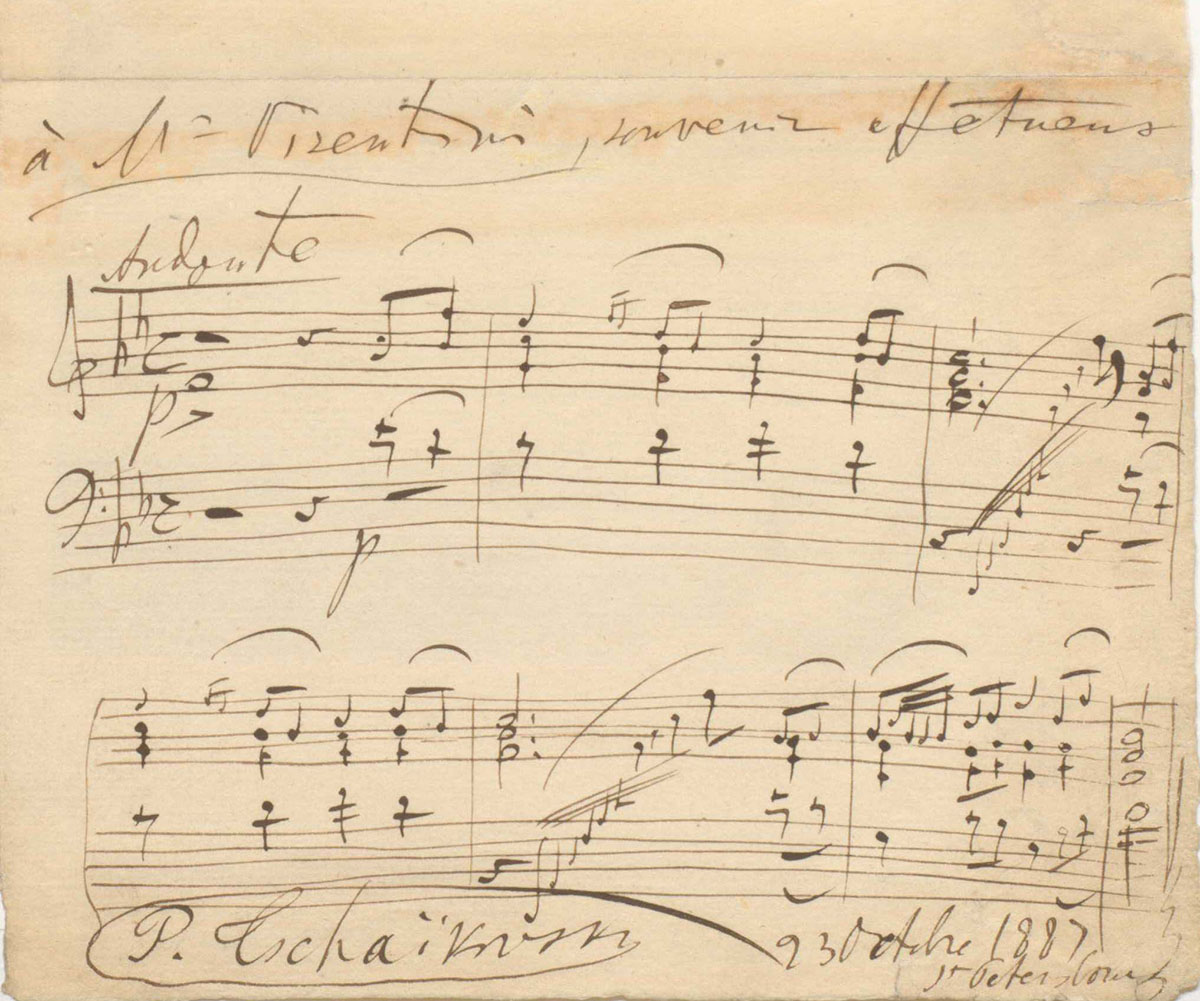 à Mr Vizentini, souvenir affetueux
Andante
p
p
P. Tschaïkovsky
23 Octbre 1887
St Petersbourg